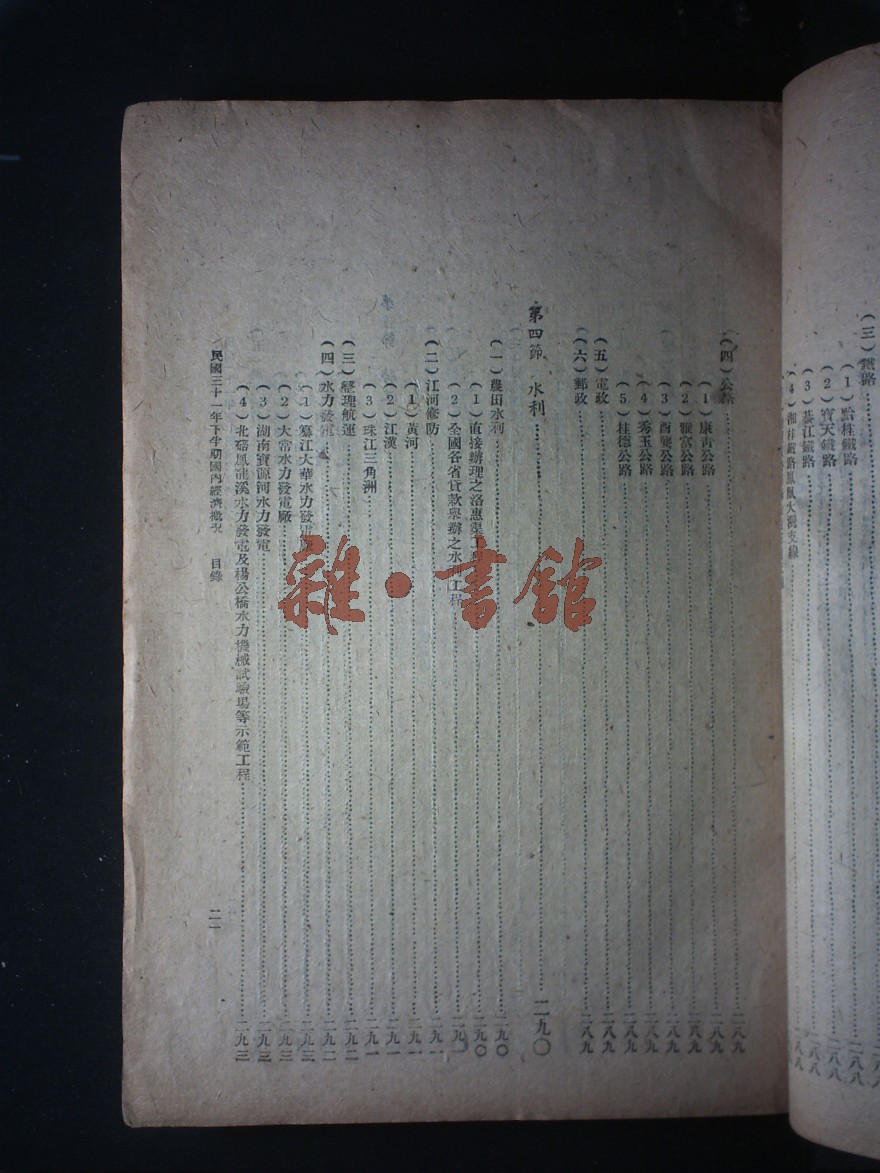 （三）鐵路
（1）黔桂鐵路……二八八
（2）寶天鐵路……二八八
（3）綦江鐵路……二八八
（4）湘桂鐵路鳳凰大灣支線……二八八
（四）公路……二八九
（1）康青公路……二八九
（2）雅富公路……二八九
（3）酉龔公路……二八九
（4）秀玉公路……二八九
（5）桂德公路……二八九
（五）電政……二八九
（六）郵政……二八九
第四節　水利……二九〇
（一）農田水利……二九〇
（1）直接辦理之洛惠渠工……二九〇
（2）全國各省貸款舉辦之水利工程……二九一
（二）江河修防……二九一
（1）黃河……二九一
（2）江漢……二九一
（3）珠江三角洲……二九一
（三）整理航運……二九二
（四）水力發電……二九二
（1）綦江大華水力發電……二九三
（2）大常水力發電廠……二九三
（3）湖南寶源河水力發電……二九三
（4）北碚鳳龍溪水力發電及楊公橋水力機械試驗場等示範工程……二九三
民國三十一年下半期國內經濟概況　目錄
二一
雜·書館